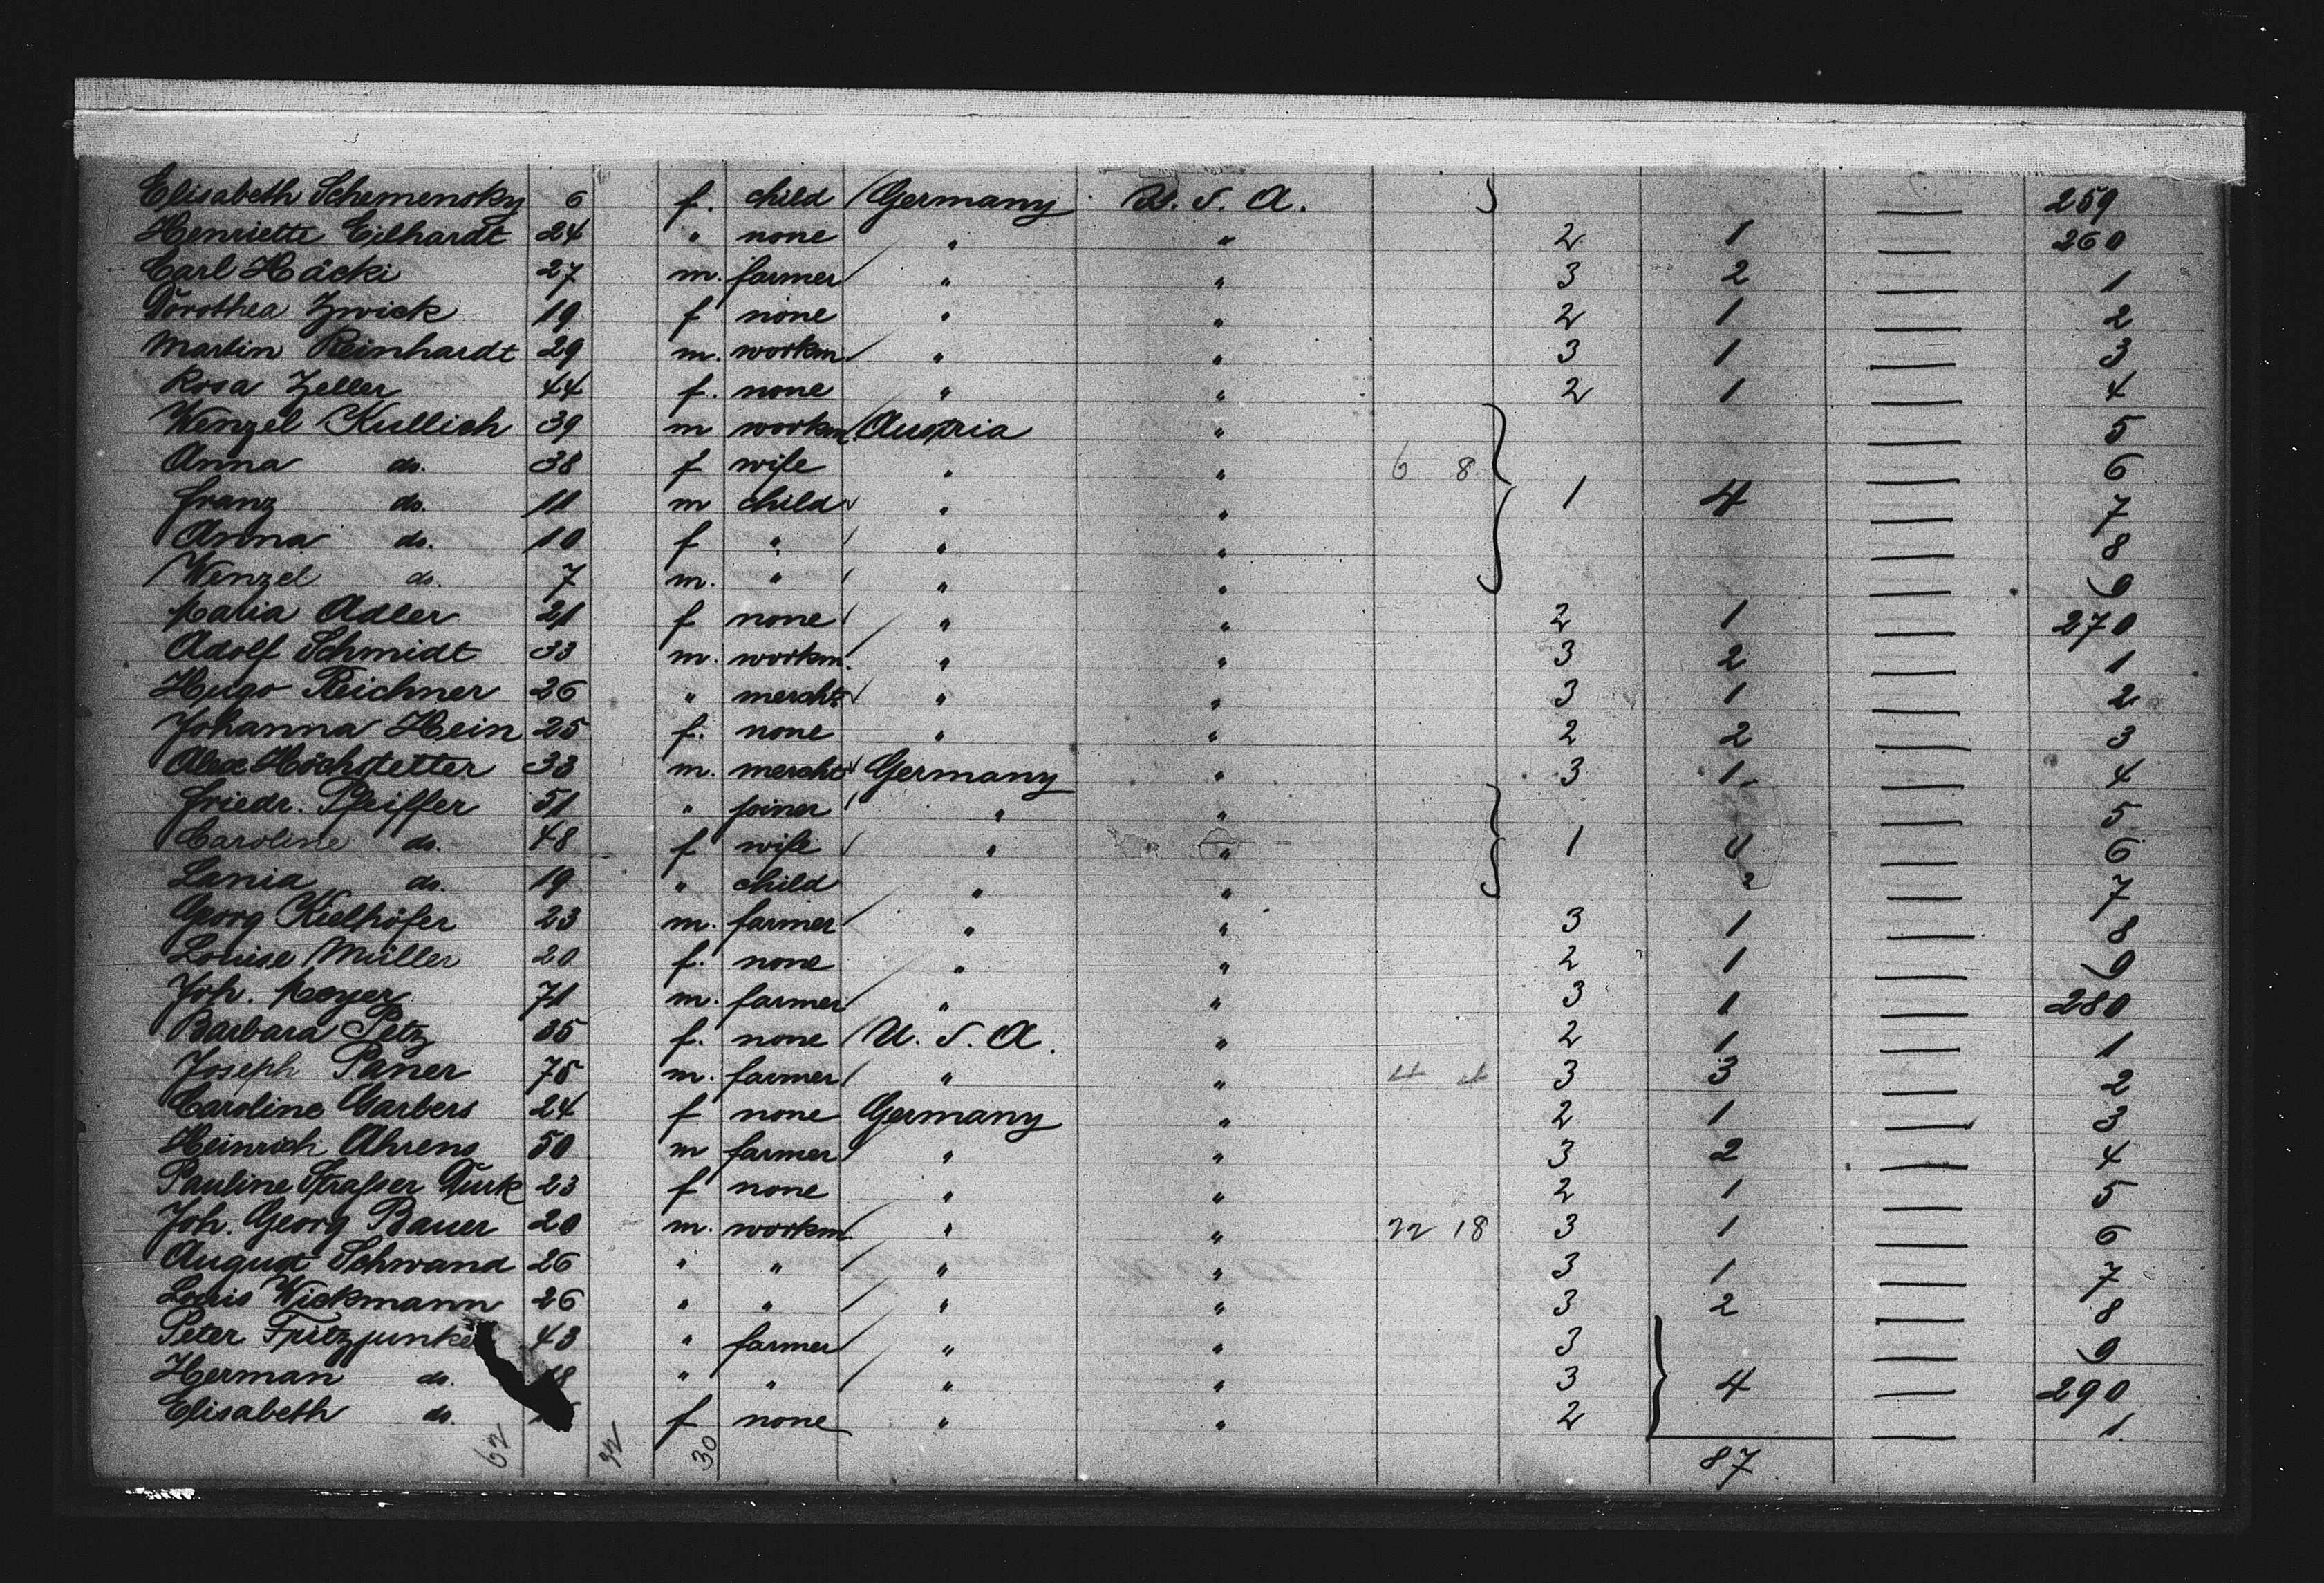 Elisabeth Schemensky 6 f. child Germany U.S.A. } — 259
Henriette Eilhardt 24 " none " " 2 1 — 260
Carl Häcki 27 m. farmer " " 3 2 — 1
Dorothea Zwick 19 f none " " 2 1 — 2
Martin Reinhardt 29 m. workm " " 3 1 — 3
Rosa Zeller 44 f. none " " 2 1 — 4
Wenzel Kullich 39 m workm. Austria " — 5
Anna do. 38 f wife " " 6 8 — 6
Franz do. 11 m child " " } 1 4 — 7
Anna do. 10 f " " " — 8
Wenzel do. 7 m. " " " — 9
Maria Adler 21 f none " " 2 1 — 270
Adolf Schmidt 33 m. workm. " " 3 2 — 1
Hugo Reichner 26 " mercht. " " 3 1 — 2
Johanna Hein 25 f. none " " 2 2 — 3
Alex Höchstetter 33 m. mercht Germany " 3 1 — 4
Friedr. Pfeiffer 51 " joiner " " — 5
Caroline do. 48 f wife " " } 1 4 — 6
Lania do. 19 " child " " 2 — 7
Georg Kielhöfer 23 m. farmer " " 3 1 — 8
Louise Müller 20 f. none " " 2 1 — 9
Joh. Meyer 71 m. farmer " " 3 1 — 280
Barbara Petz 35 f. none U.S.A. " 2 1 — 1
Joseph Paner 75 m. farmer " " 4 4 3 3 — 2
Caroline Garbers 24 f none Germany " 2 1 — 3
Heinrich Ahrens 50 m farmer " " 3 2 — 4
Pauline Strasser Turk 23 f none " " 2 1 — 5
Joh. Georg Bauer 20 m. workm. " " 22 18 3 1 — 6
August Schwand 26 " " " " 3 1 — 7
Louis Wickmann 26 " " " " 3 2 — 8
Peter Fritzjunke 43 " farmer " " 3 — 9
Herman do. 18 " " " " 3 } 4 — 290
Elisabeth do. f none " " 2 — 1
62 32 30 87